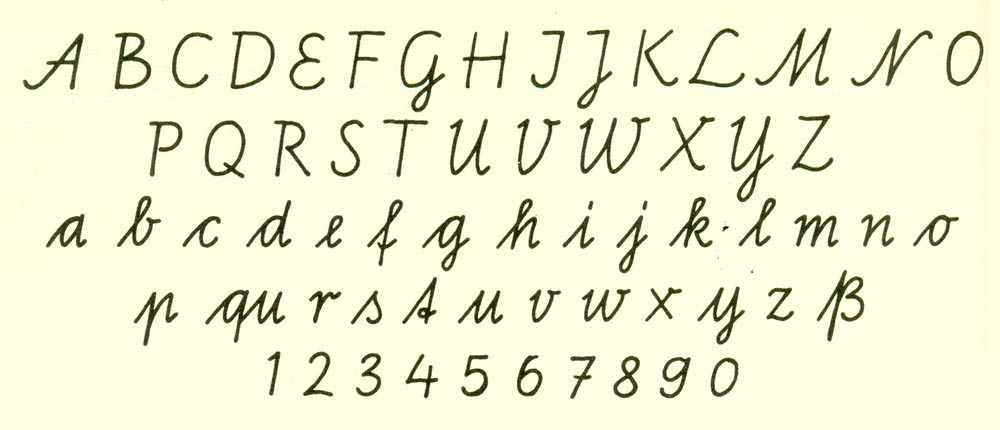 A B C D E F G H I J K L M N O
P Q R S T U V W X Y Z
a b c d e f g h i j k l m n o
p qu r s t u v w x y z ß
1 2 3 4 5 6 7 8 9 0